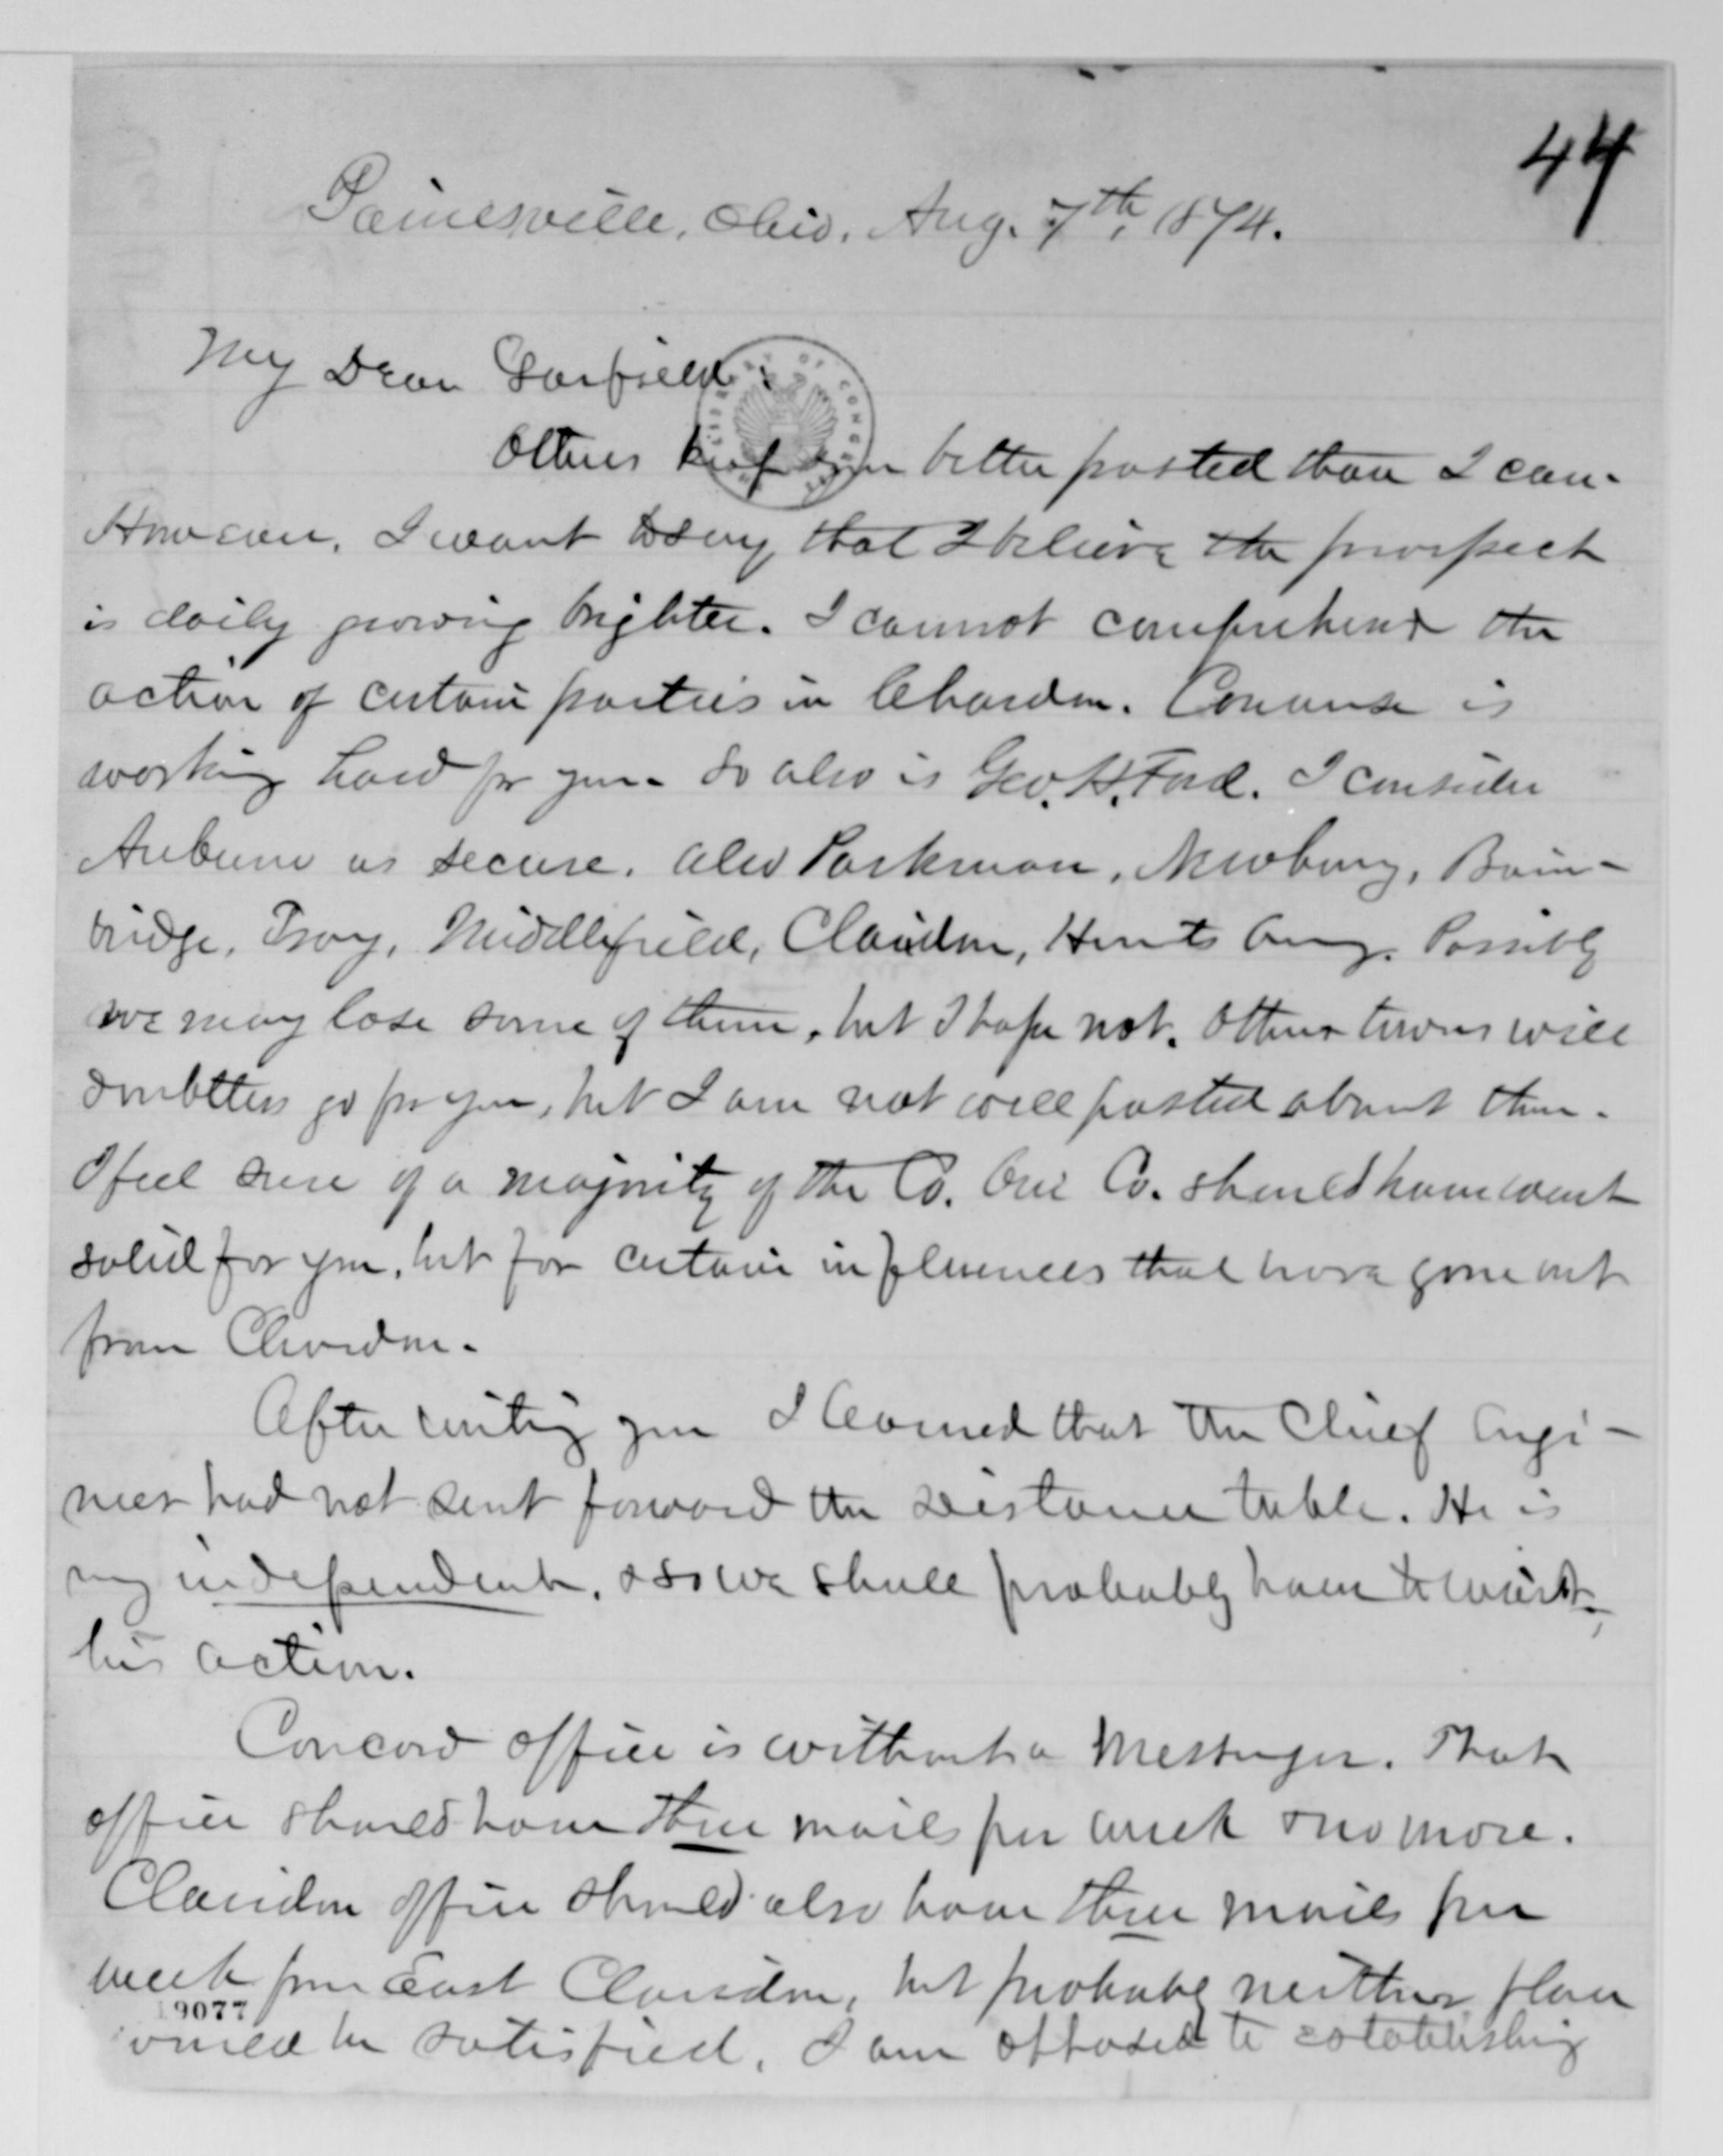 44
Painesville, Ohio, Aug. 7th, 1874.
My Dear Garfield:
LIBRARY OF CONGRESS
Others keep you better posted than I can.
However, I want to say that I believe the prospect
is daily growing brighter. I cannot comprehend the
action of certain parties in Chardon. Converse is
working hard for you. So also is Geo. H. Ford. I consider
Auburn as secure. Also Parkman, Newbury, Bain-
bridge, Troy, Middlefield, Claridon, Huntsburg. Possibly
we may lose some of them, but I hope not. Other towns will
doubtless go for you, but I am not well posted about them.
I feel sure of a majority of the Co. Our Co. should have went
solid for you, but for certain influences that have gone out
from Chardon.
After writing you I learned that the Chief Engi-
neer had not sent forward the distance table. He is
independent, & so we shall probably have to
his action.
Concord office is without a Messenger. That
office should have three mails per week & no more.
Claridon office should also have three mails per
week from East Claridon, but probably neither place
19077
would be satisfied. I am opposed to establishing